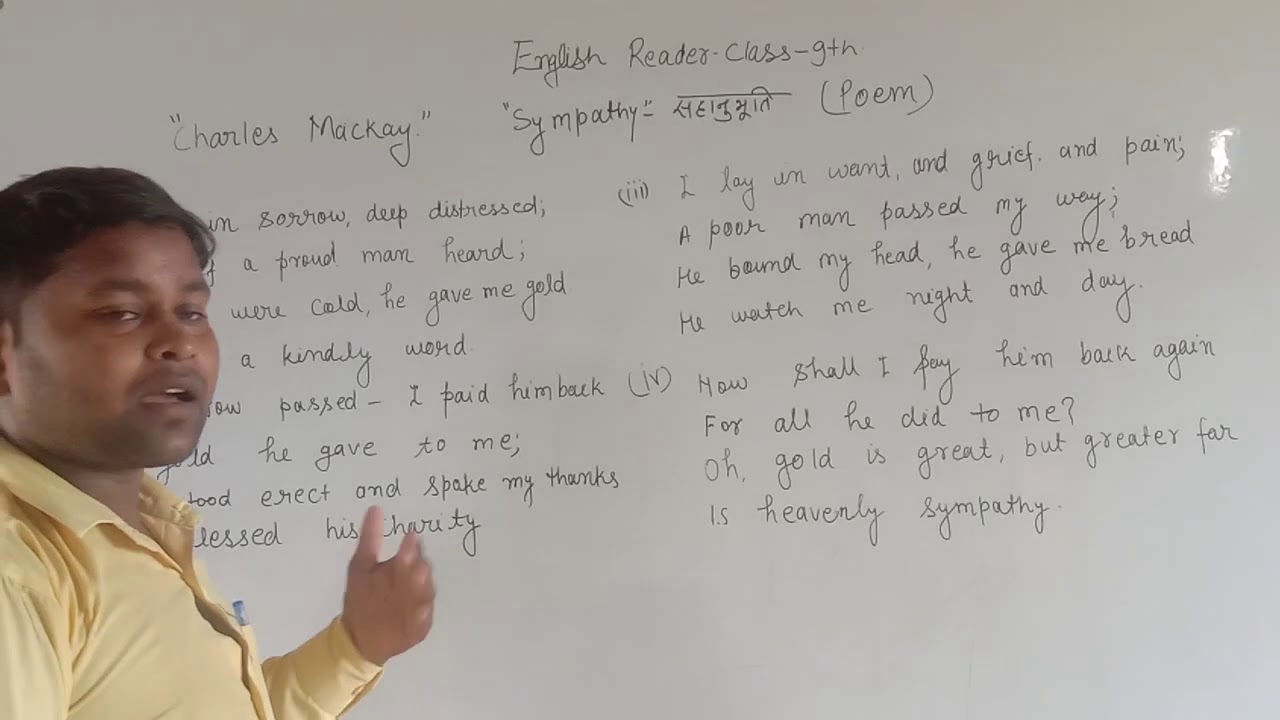 English Reader-Class-9th.
"Charles Mackay."
"Sympathy"- सहानुभूति (Poem)
in sorrow, deep distressed;
a proud man heard;
were cold, he gave me gold
a kindly word.
passed - I paid him back
he gave to me;
erect and spake my thanks
his charity
(iii) I lay in want, and grief. and pain;
A poor man passed my way;
He bound my head, he gave me bread
He watch me night and day.
(iv) How shall I pay him back again
For all he did to me?
Oh, gold is great, but greater far
Is heavenly sympathy.